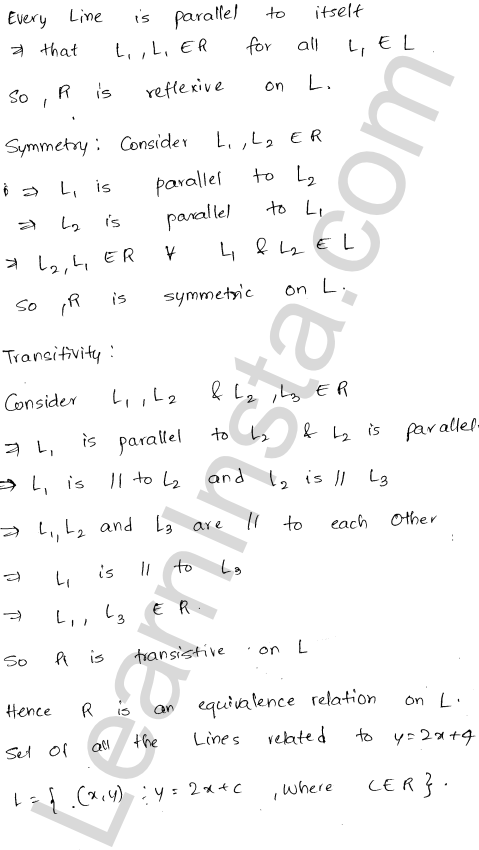 Every Line is parallel to itself
⇒ that L₁, L₁ ∈ R for all L₁ ∈ L
So, R is reflexive on L.
Symmetry: Consider L₁, L₂ ∈ R
⇒ L₁ is parallel to L₂
⇒ L₂ is parallel to L₁
⇒ L₂, L₁ ∈ R ∀ L₁ & L₂ ∈ L
So, R is symmetric on L.
Transitivity:
Consider L₁, L₂ & L₂, L₃ ∈ R
⇒ L₁ is parallel to L₂ & L₂ is parallel
⇒ L₁ is || to L₂ and L₂ is || L₃
⇒ L₁, L₂ and L₃ are || to each other
⇒ L₁ is || to L₃
⇒ L₁, L₃ ∈ R.
So R is transistive on L
Hence R is an equivalence relation on L.
Set of all the Lines related to y=2x+4
L = { (x,y) : y = 2x+c, where C∈R }.
LearnInsta.com